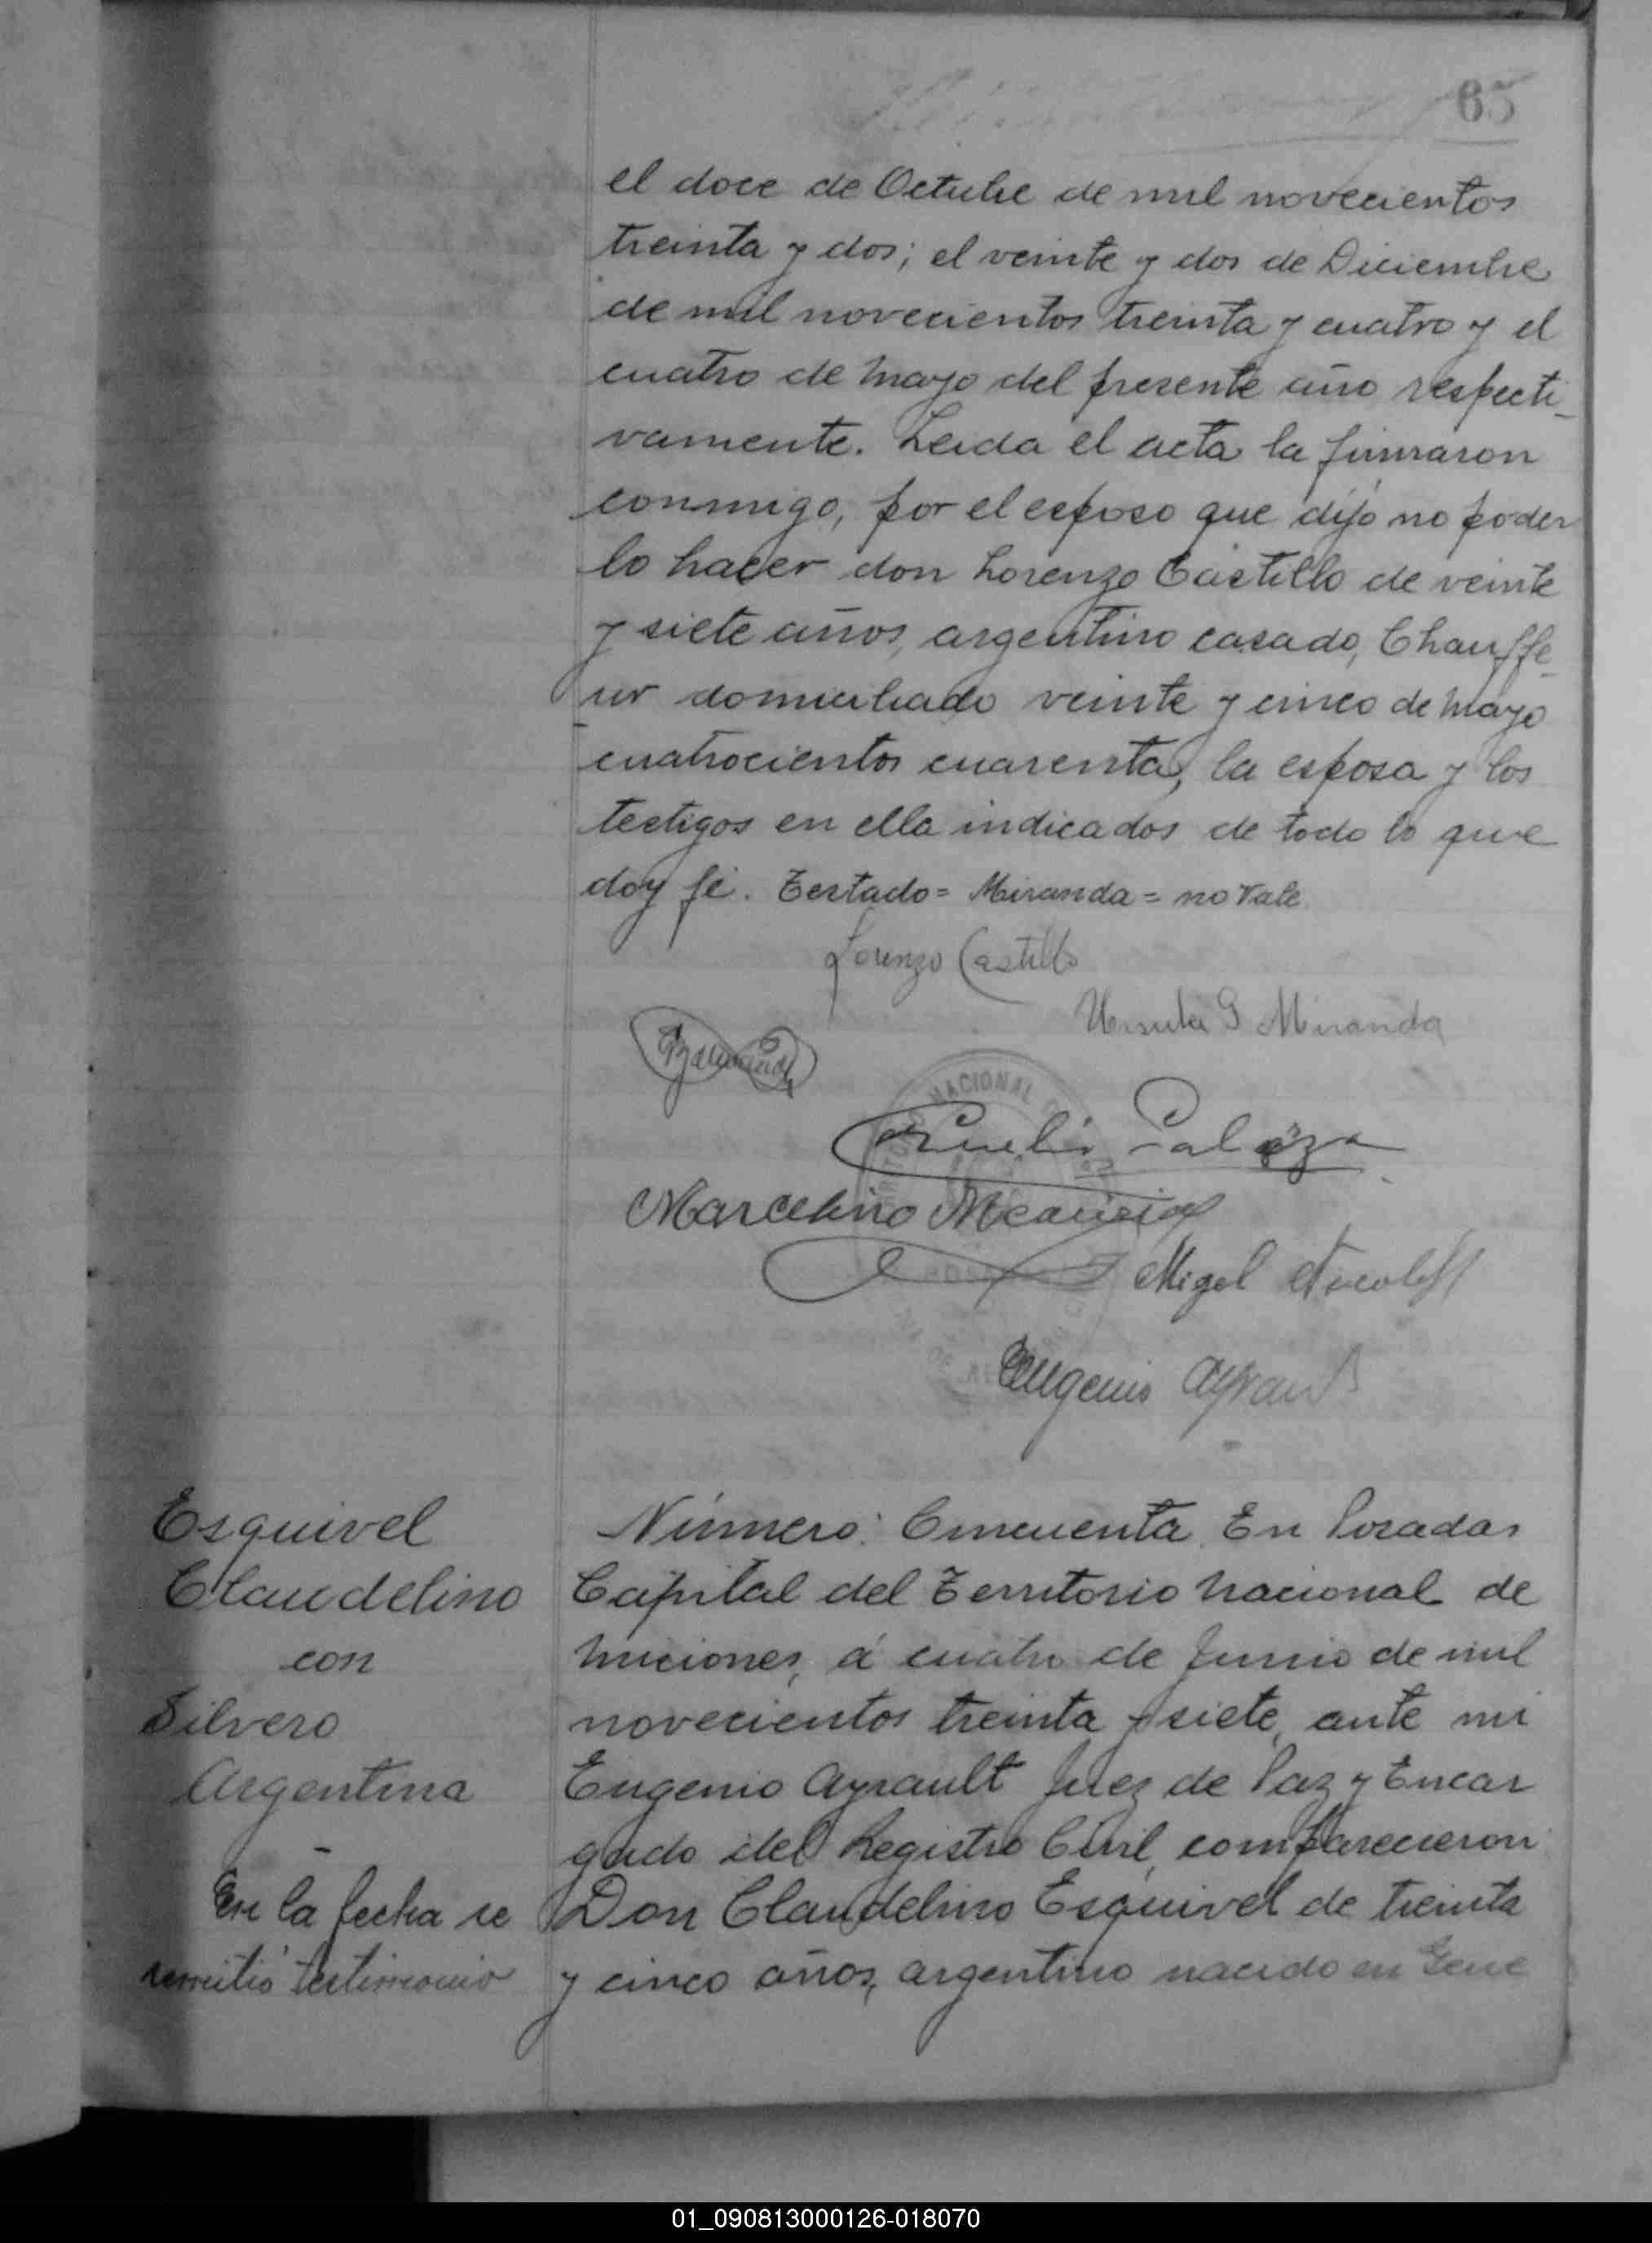 65
el doce de Octubre de mil novecientos
treinta y dos; el veinte y dos de Diciembre
de mil novecientos treinta y cuatro y el
cuatro de Mayo del presente año respecti-
vamente. Leida el acta la firmaron
conmigo, por el esposo que dijo no poder
lo hacer don Lorenzo Castillo de veinte
y siete años, argentino casado, Chauffe-
ur domiciliado veinte y cinco de Mayo
cuatrocientos cuarenta, la esposa y los
testigos en ella indicados de todo lo que
doy fé. Testado = Miranda = no vale
Lorenzo Castillo
Ursula G Miranda
NACIONAL
Marcelino
Migel
Eugenio Ayrault
Esquivel
Claudelino
con
Silvero
Argentina
En la fecha se
remitió testimonio
Número: Cincuenta. En Posadas
Capital del Territorio Nacional de
Misiones, á cuatro de Junio de mil
novecientos treinta y siete, ante mi
Eugenio Ayrault Juez de Paz y Encar
gado del Registro Civil, comparecieron
Don Claudelino Esquivel de treinta
y cinco años, argentino nacido en Gene
01_090813000126-018070